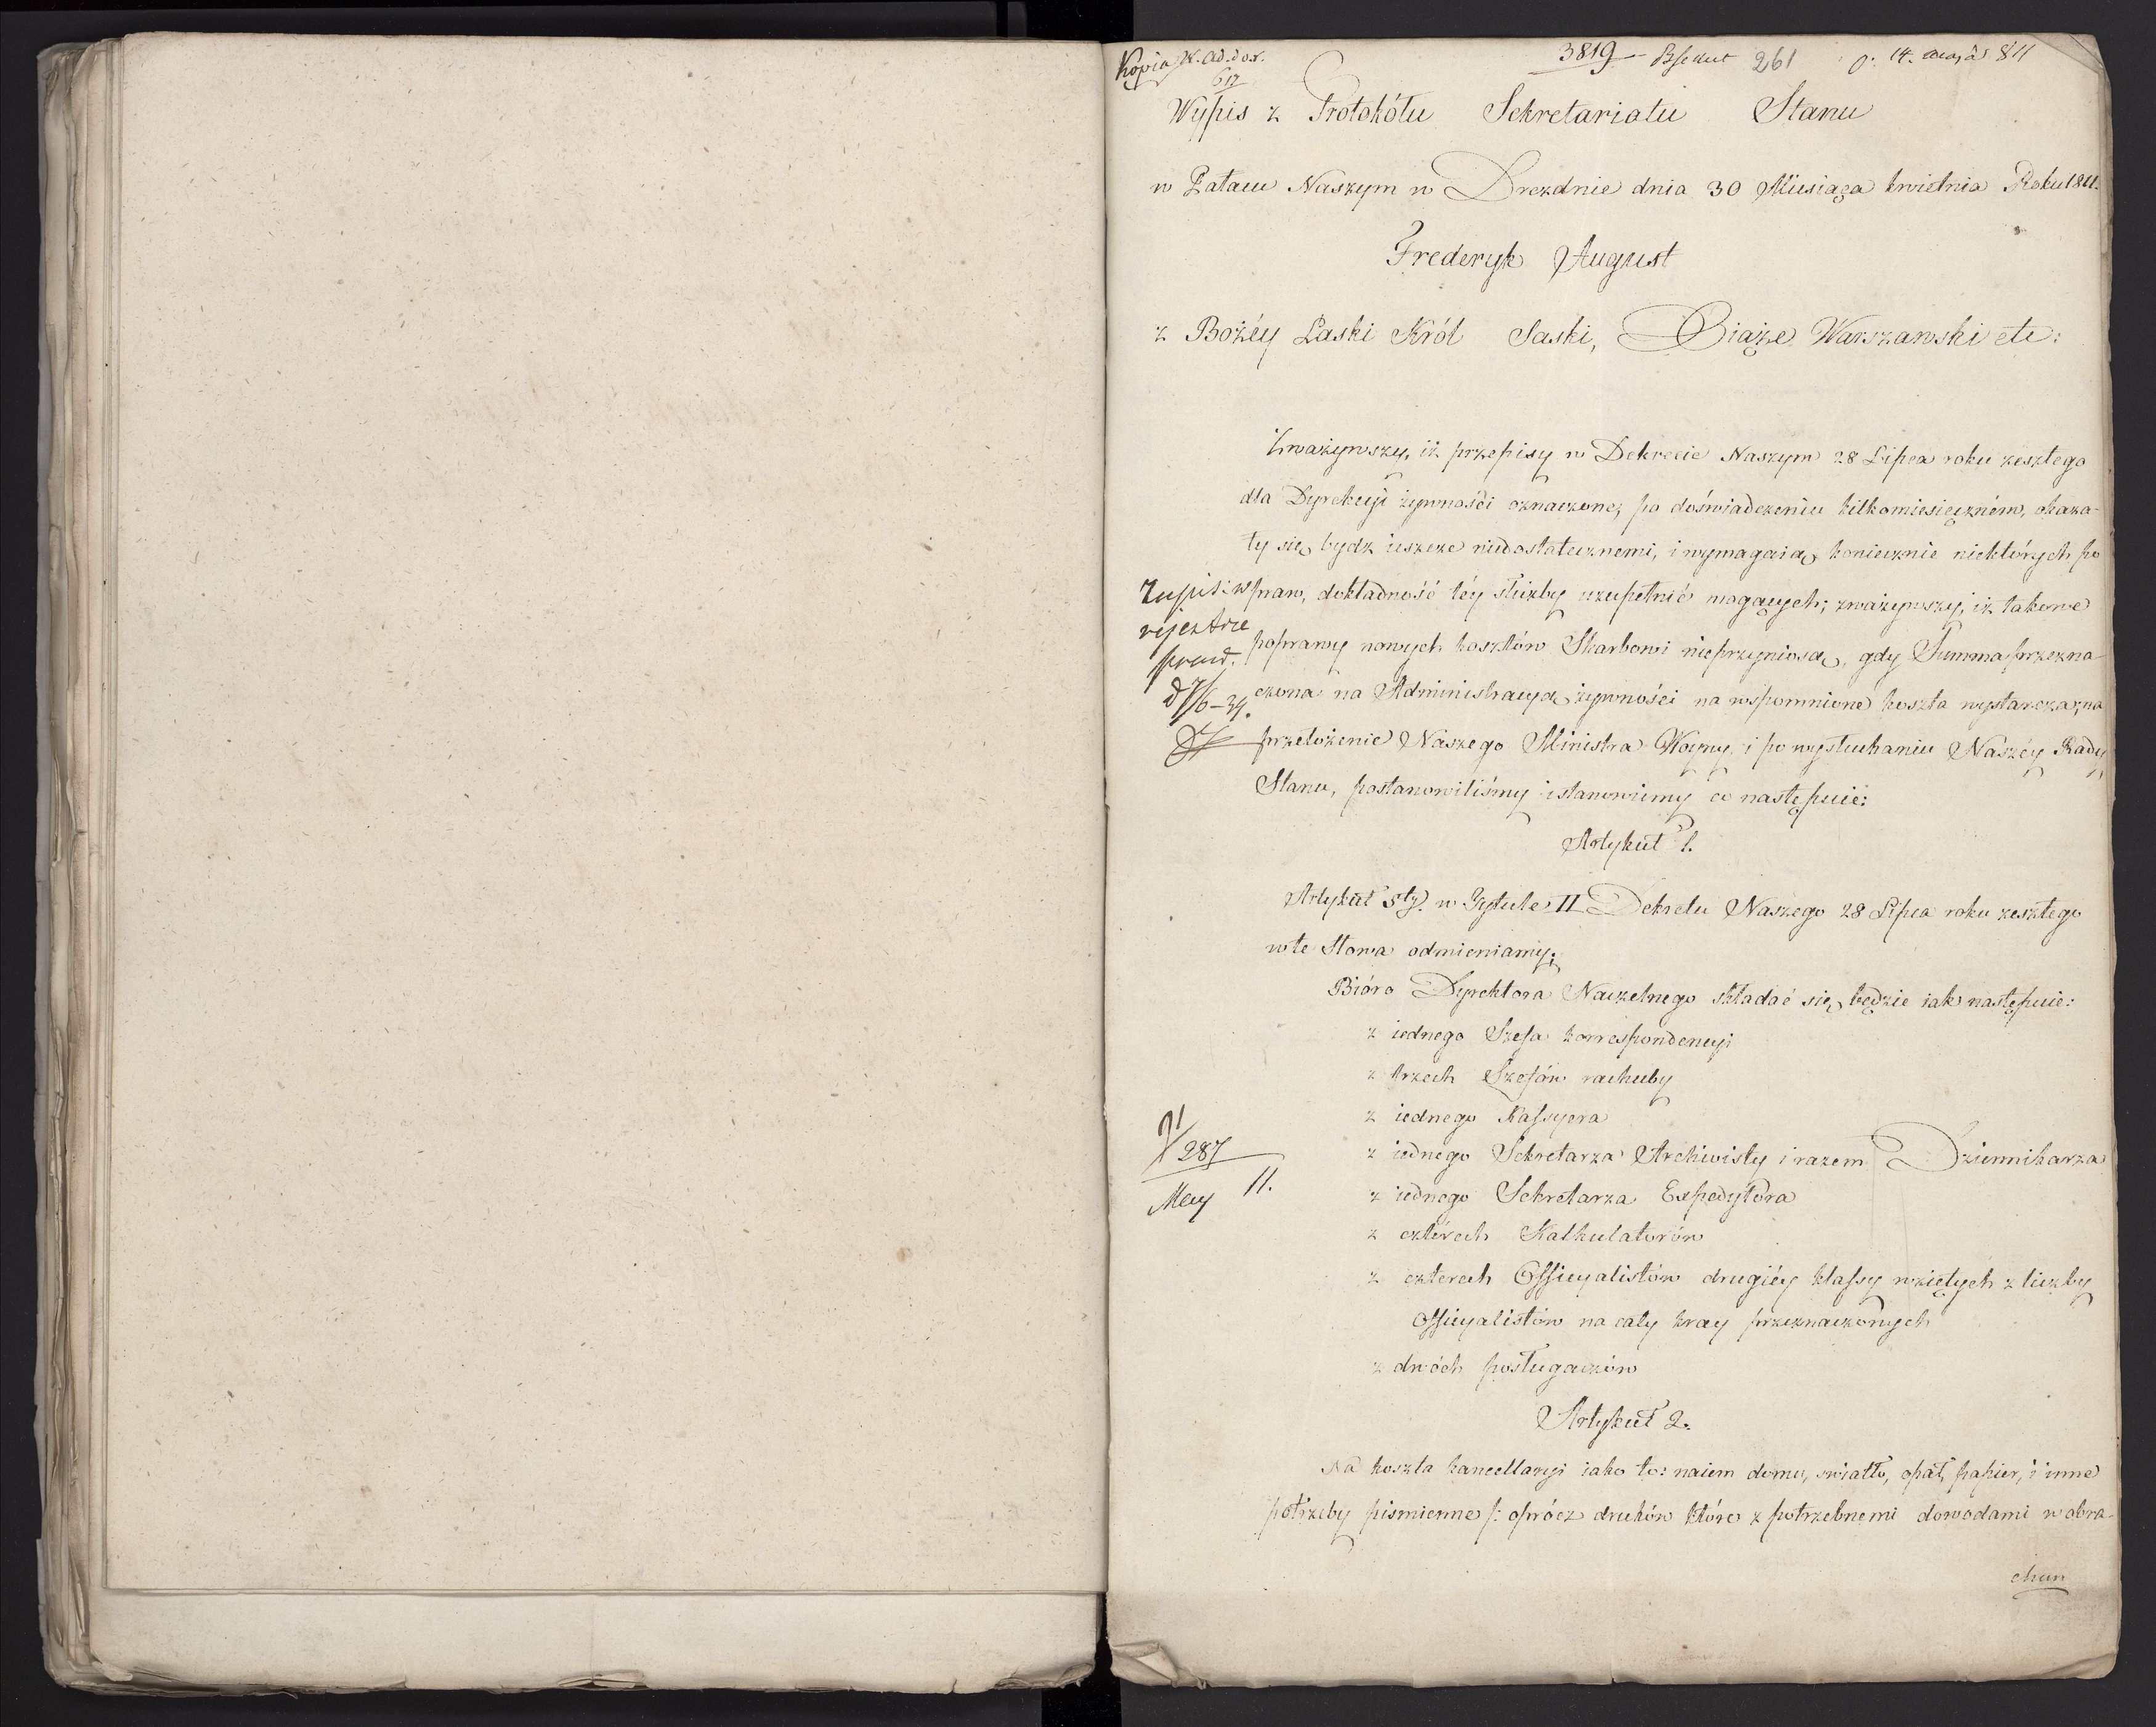 Kopia K. ad. dox.
617
3819 — 261 p. 14. maja 811
Wypis z Protokółu Sekretariatu Stanu
w Pałacu Naszym w Dreznie dnia 30 Miesiąca kwietnia Roku 1811.
Frederyk August
z Bożéy Łaski Król Saski, Xiąże Warszawski etc:
Zważywszy, iż przepisy w Dekrecie Naszym 28 Lipca roku zeszłego
dla Dyrekcyi żywności oznaczone, po doświadczeniu kilkomiesięczném, okaza-
ły się bydz ieszcze niedostatecznemi, i wymagaią koniecznie niektórych po
praw, dokładność téy służby uzupełnić mogących; zważywszy, iż takowe
poprawy nowych kosztów Skarbowi nieprzyniosą, gdy Summa przezna-
czona na Administracyą żywności na wspomnione koszta wystarcza; na
przełożenie Naszego Ministra Woyny, i po wysłuchaniu Naszéy Rady
Stanu, postanowiliśmy i stanowiemy co następuie:
Zapis: w
rejestrze
prawd.
d 7/6 – 34.
Artykuł 1.
Artykuł 5ty. w Tytule II Dekretu Naszego 28 Lipca roku zeszłego
w te słowa odmieniamy;
Bióro Dyrektora Naczelnego składać się będzie iak następuie:
z iednego Szefa korrespondencyi
z trzech Szefów rachuby
z iednego Kassyera
z iednego Sekretarza Archiwisty i razem Dziennikarza
z iednego Sekretarza Expedytora
z cztérech Kalkulatorów
z czterech Officyalistów drugiéy klassy wziętych z liczby
officyalistów na cały kray przeznaczonych
z dwóch posługaczów
287
May 11.
Artykuł 2.
Na koszta kancellaryi iako to: naiem domu, swiatło, opał, papier, i inne
potrzeby pismienne /: oprócz druków które z potrzebnemi dowodami w obra-
chun